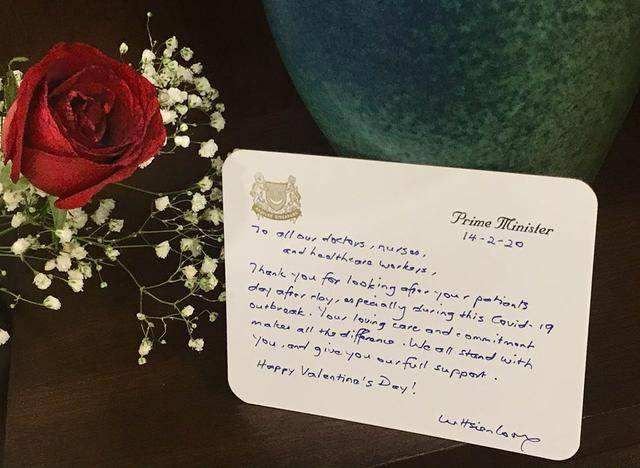 Prime Minister
14-2-20
To all our doctors, nurses,
and healthcare workers,
Thank you for looking after your patients
day after day, especially during this Covid-19
outbreak. Your loving care and commitment
makes all the difference. We all stand with
you, and give you our full support.
Happy Valentine's Day!
Lee Hsien Loong